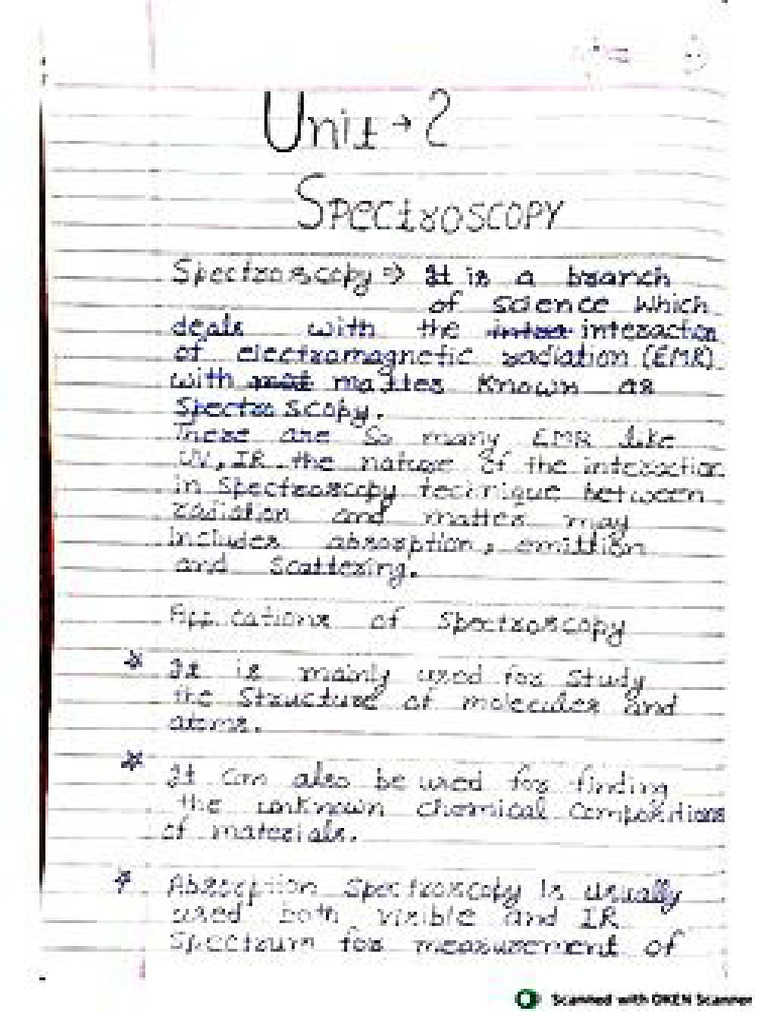 Unit → 2
SPECtROSCOPY
Spectroscopy ⇒ It is a branch
of science which
deals with the interaction
of electromagnetic radiation (EMR)
with matter known as
Spectroscopy.
There are so many EMR like
UV, IR the nature of the interaction
in spectroscopy technique between
radiation and matter may
includes absorption, emittion
and scattering.
Applications of spectroscopy
* It is mainly used for study
the structure of molecules and
atoms.
* It can also be used for finding
the unknown chemical compositions
of materials.
* Absorption spectroscopy is usually
used both visible and IR
spectrum for measurement of
Scanned with OKEN Scanner